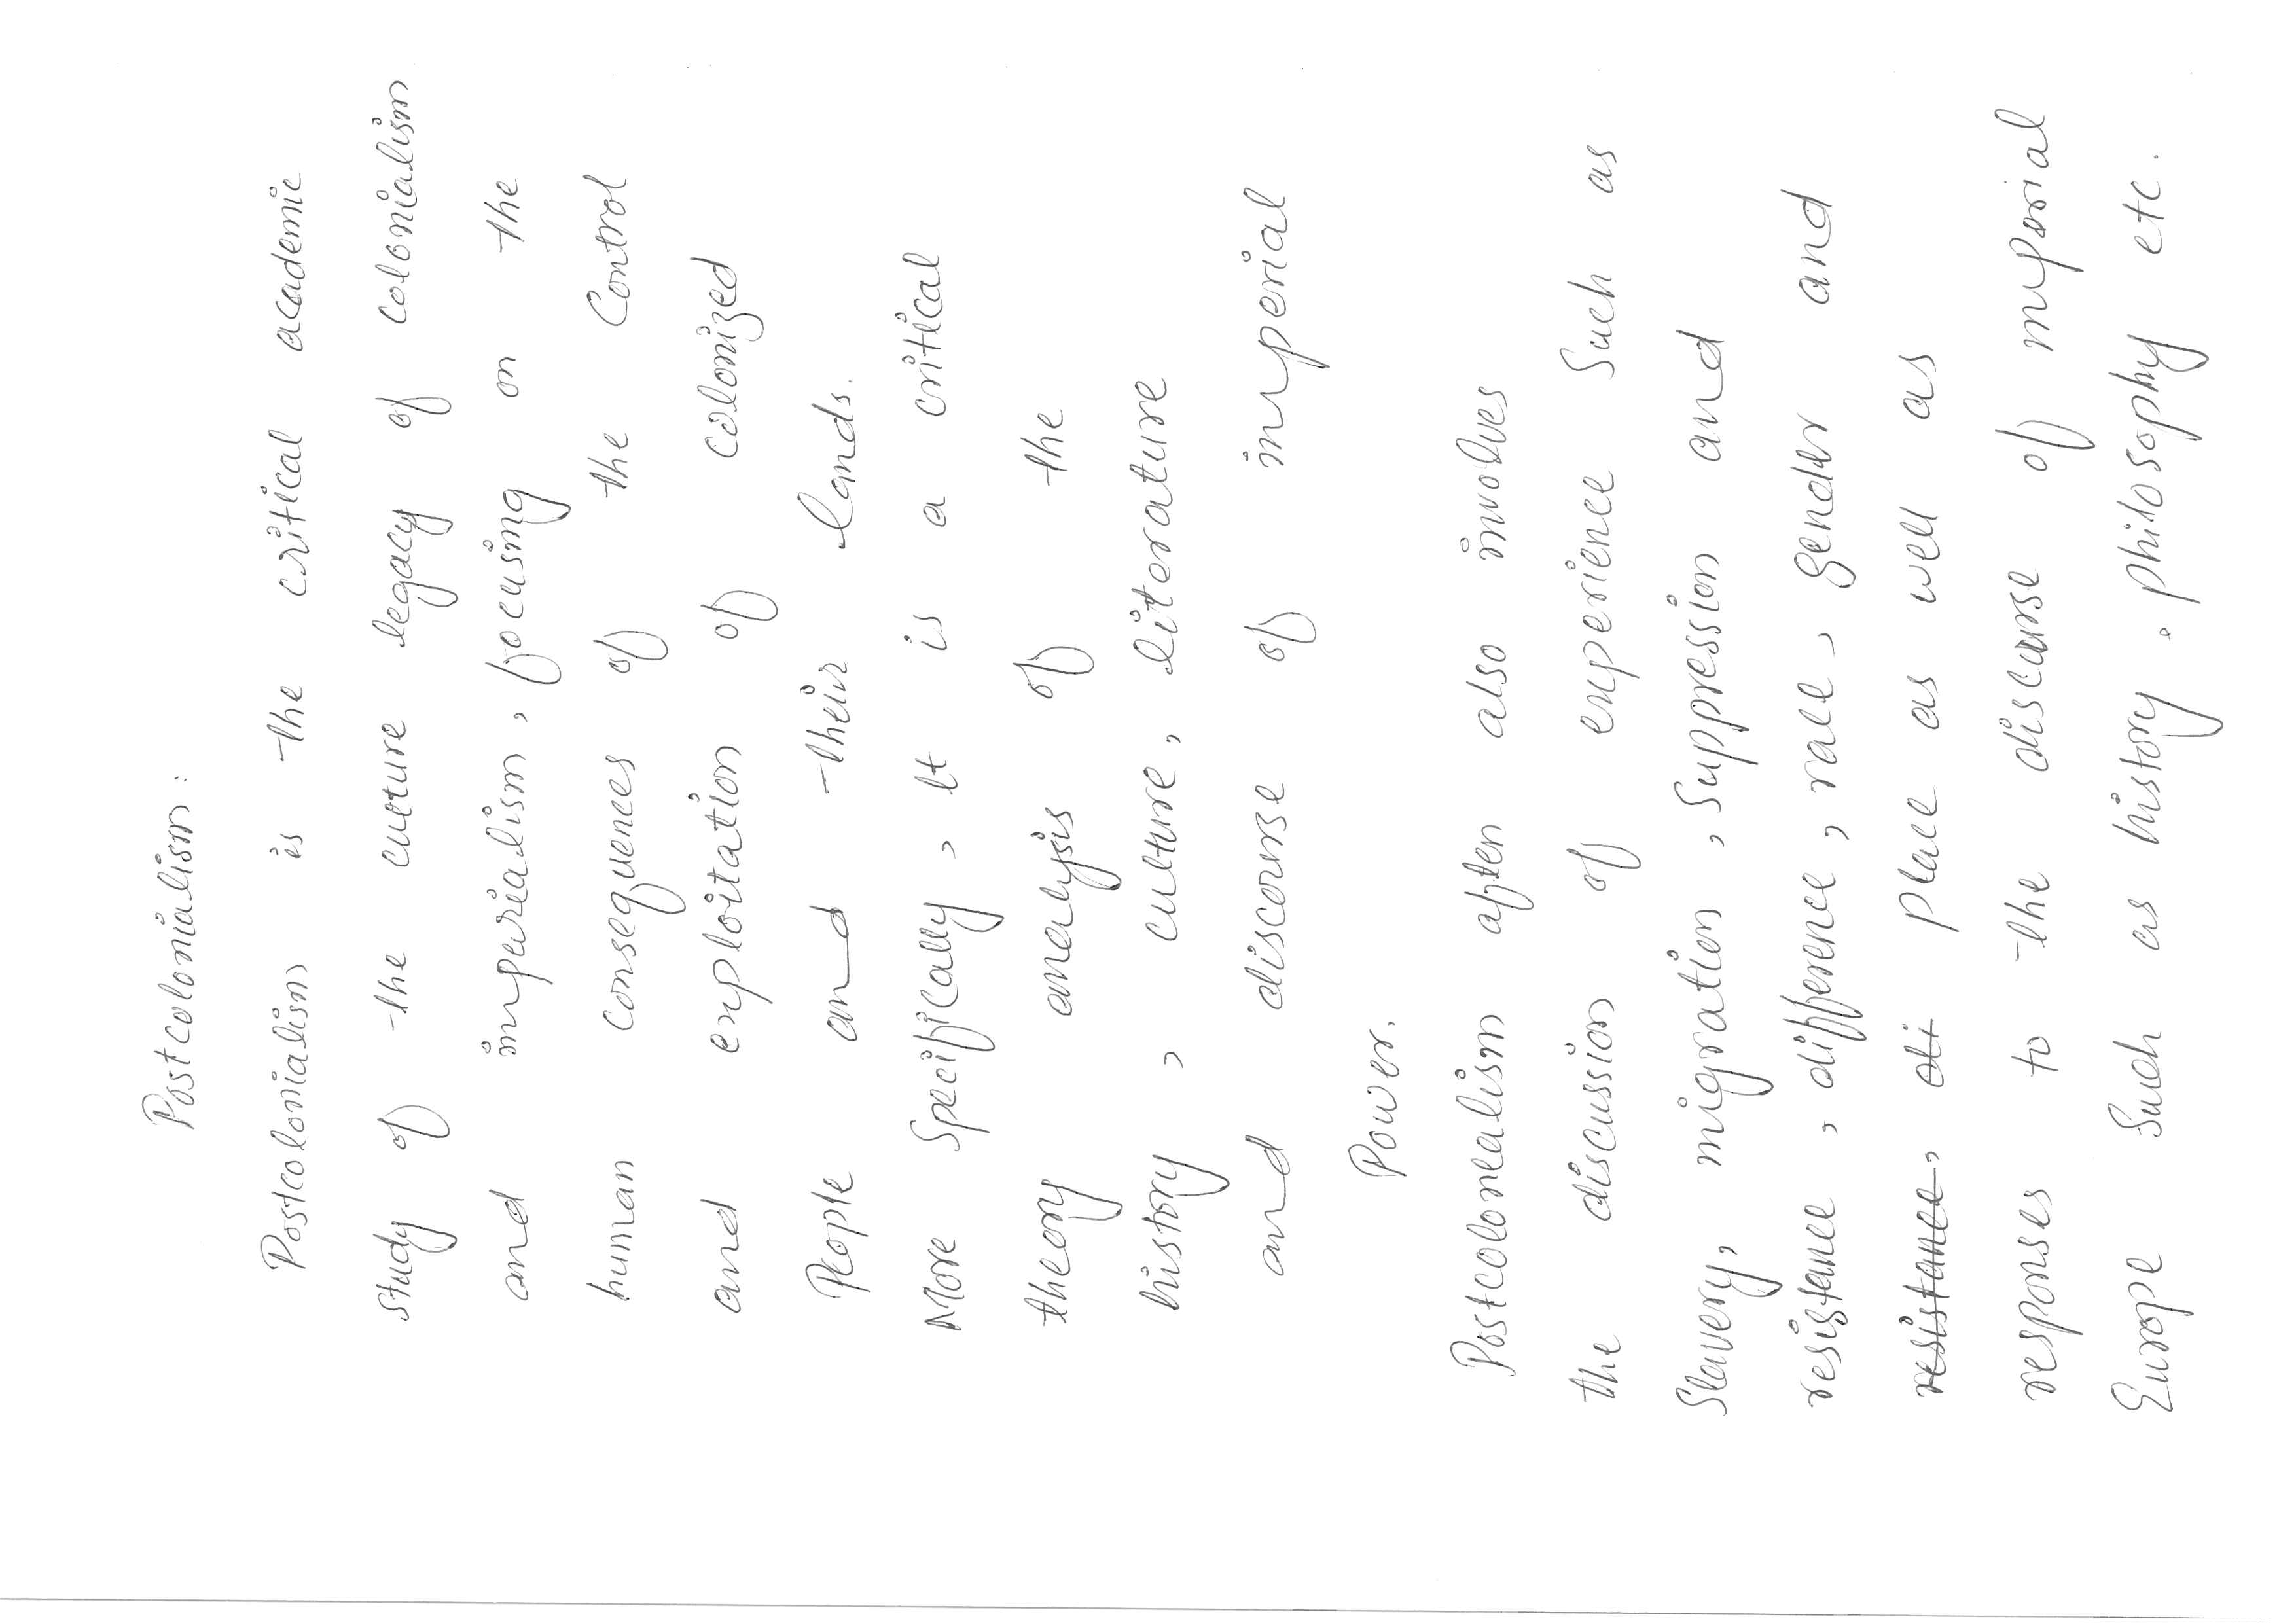 Postcolonialism:
Postcolonialism is the critical academic
study of the culture legacy of colonialism
and imperialism, focusing on the
human consequences of the Control
and exploitation of colonized
People and their lands.
More Specifically, It is a critical
theory analysis of the
history, culture, literature
and discourse of imperial
Power.
Postcolonealism often also involves
the discussion of experience Such as
Slavery, migration, Suppression and
resistance, difference, race, gender and
resistance, di place as well as
responses to the discourse of imperial
Europe Such as history, philosophy etc.